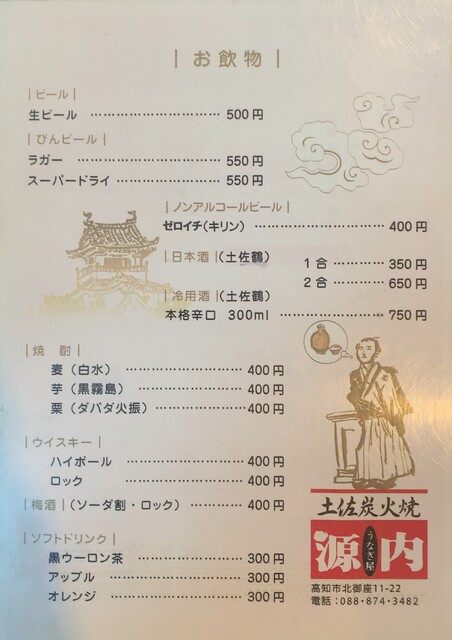 お飲物
ビール
生ビール ………………… 500円
びんビール
ラガー ………………… 550円
スーパードライ ………………… 550円
ノンアルコールビール
ゼロイチ(キリン) ………………… 400円
日本酒 (土佐鶴)
1合 ………… 350円
2合 ………… 650円
冷用酒 (土佐鶴)
本格辛口 300ml ………………… 750円
焼酎
麦(白水) ………………… 400円
芋(黒霧島) ………………… 400円
栗(ダバダ火振) ………………… 400円
ウイスキー
ハイボール ………………… 400円
ロック ………………… 400円
梅酒 (ソーダ割・ロック) ………… 400円
ソフトドリンク
黒ウーロン茶 ………………… 300円
アップル ………………… 300円
オレンジ ………………… 300円
土佐炭火焼
源内
うなぎ屋
高知市北御座11-22
電話:088-874-3482